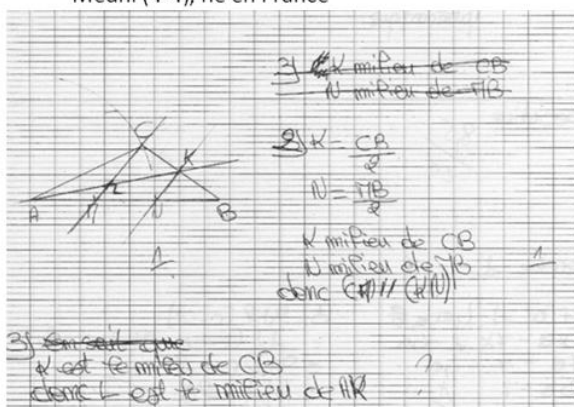 né en France
2) K milieu de CB
N milieu de MB
C
K
L
A
M
N
B
1
2) K = CB
2
N = MB
2
K milieu de CB
N milieu de MB
donc (CM) // (KN)
1
3) on sait que
K est le milieu de CB
donc L est le milieu de AK
?